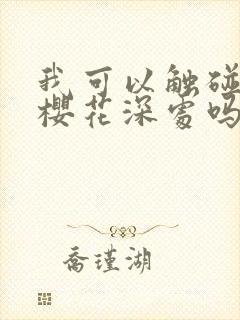 我可以触碰
樱花深处吗
乔瑾湖